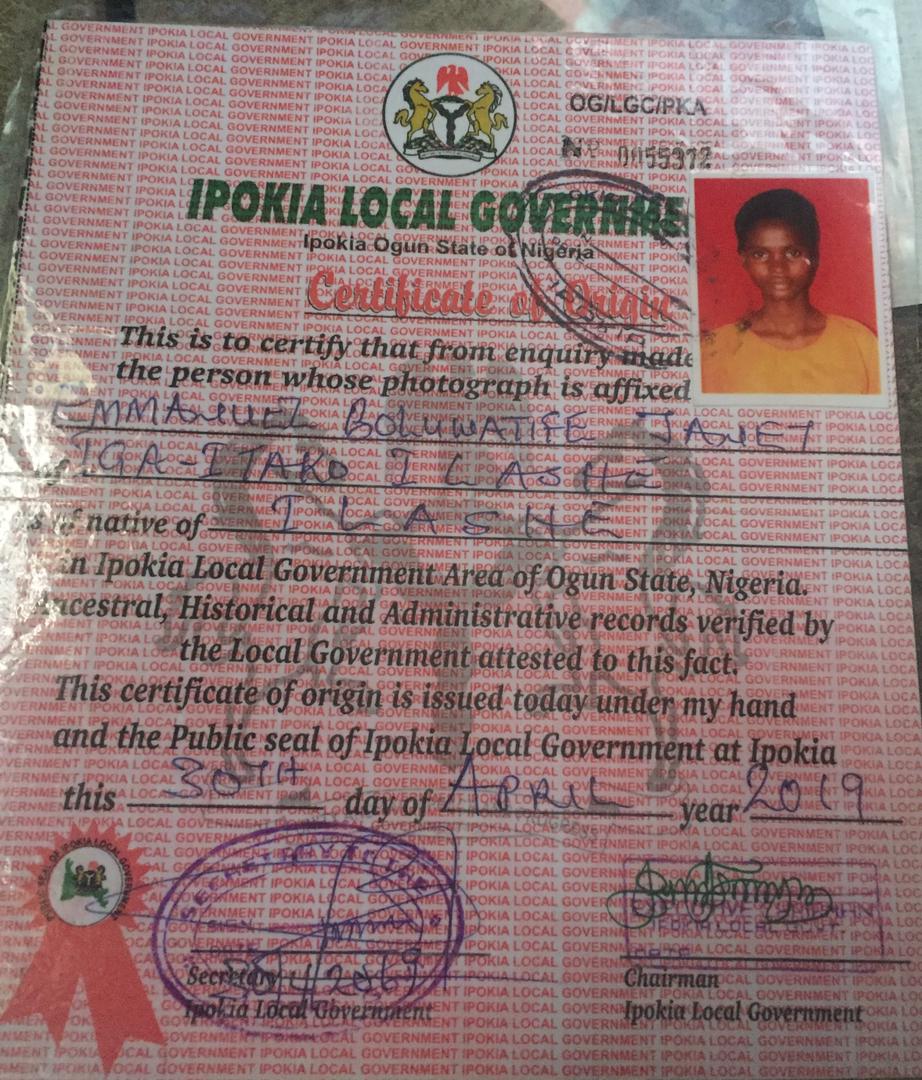 OG/LGC/PKA
Nº 0055972
IPOKIA LOCAL GOVERNME
Ipokia Ogun State of Nigeria
Certificate of Origin
This is to certify that from enquiry made
the person whose photograph is affixed
EMMANUEL BOLUWATIFE JANET
IGA-ITAKO ILASHE
native of ILASHE
in Ipokia Local Government Area of Ogun State, Nigeria.
Ancestral, Historical and Administrative records verified by
the Local Government attested to this fact.
This certificate of origin is issued today under my hand
and the Public seal of Ipokia Local Government at Ipokia
this 30TH day of APRIL year 2019
SIGN
Secretary
Ipokia Local Government
Chairman
Ipokia Local Government